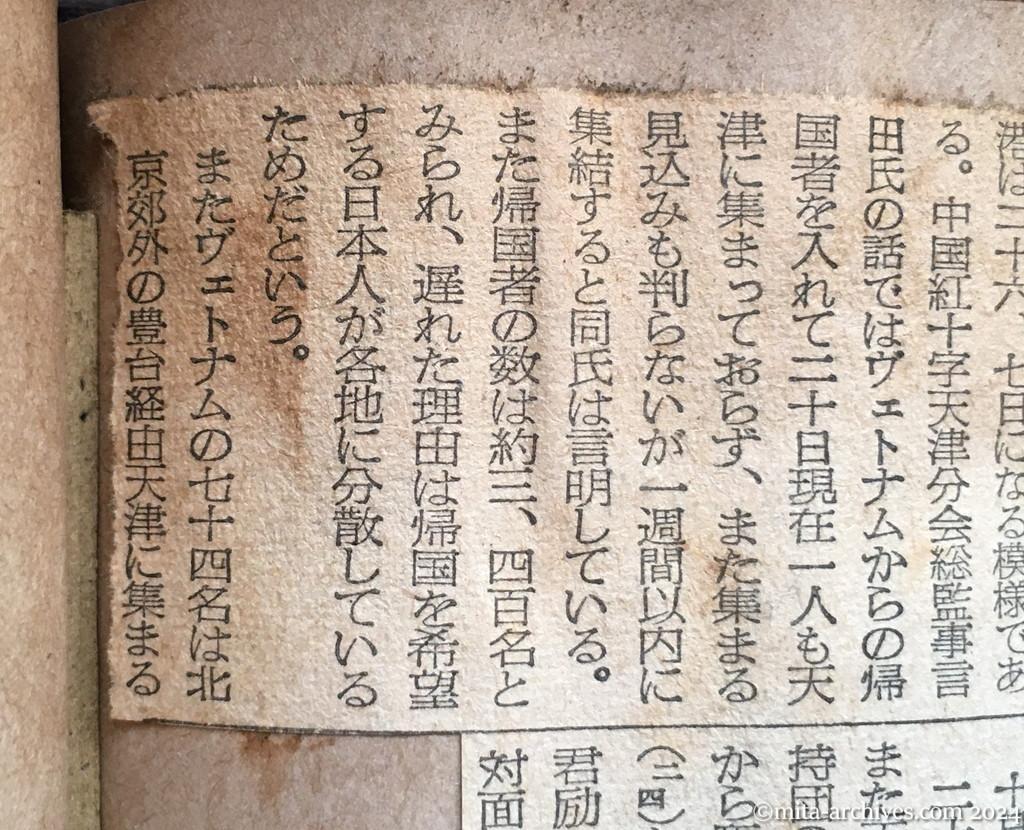 港は二十六、七日になる模様であ
る。中国紅十字天津分会総監事言
田氏の話ではヴェトナムからの帰
国者を入れて二十日現在一人も天
津に集まっておらず、また集まる
見込みも判らないが一週間以内に
集結すると同氏は言明している。
また帰国者の数は約三、四百名と
みられ、遅れた理由は帰国を希望
する日本人が各地に分散している
ためだという。
またヴェトナムの七十四名は北
京郊外の豊台経由天津に集まる
また
持団の
から
（二四）
君励
対面
©mita-archives.com 2024